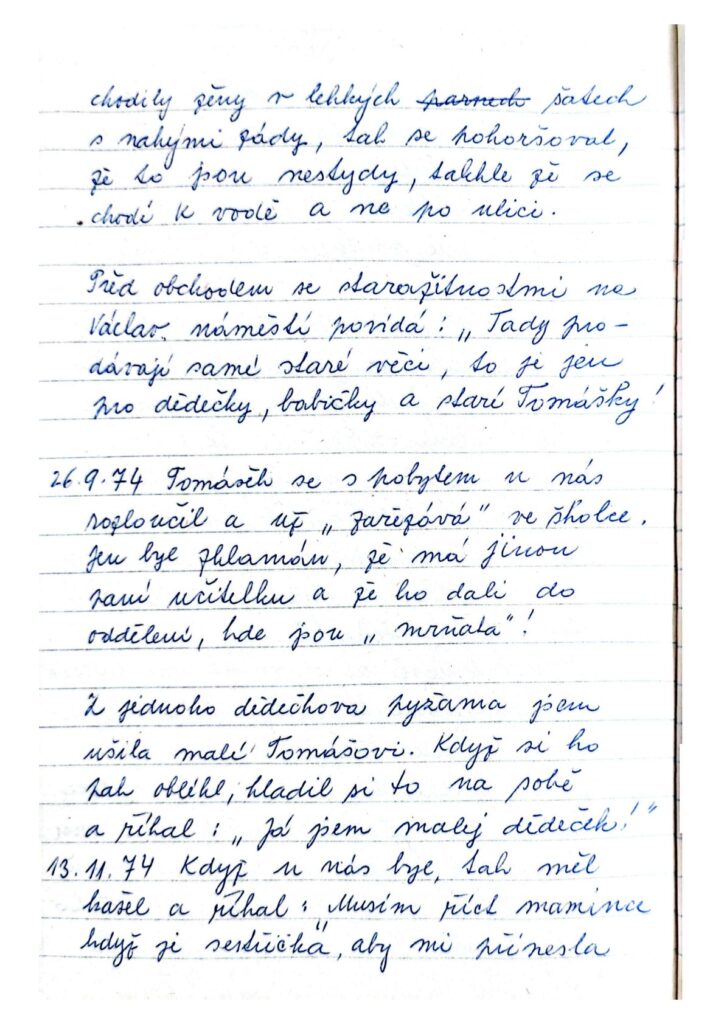 chodily ženy v lehkých parnech šatech
s nahými zády, tak se pohoršoval,
že to jsou nestydy, takhle že se
chodí k vodě a ne po ulici.
Před obchodem se starožitnostmi na
Václav. náměstí povídá: „Tady pro-
dávají samé staré věci, to je jen
pro dědečky, babičky a staré Tomášky!
26.9.74 Tomášek se s pobytem u nás
rozloučil a už „zařezává" ve školce.
Jen byl zklamán, že má jinou
paní učitelku a že ho dali do
oddělení, kde jsou „mrňata"!
Z jednoho dědečkova pyžama jsem
ušila malé Tomášovi. Když si ho
pak oblékl, hladil si to na sobě
a říkal: „Já jsem malej dědeček!"
13.11.74 Když u nás byl, tak měl
kašel a říkal: „Musím říct mamince
když je sestřička, aby mi přinesla